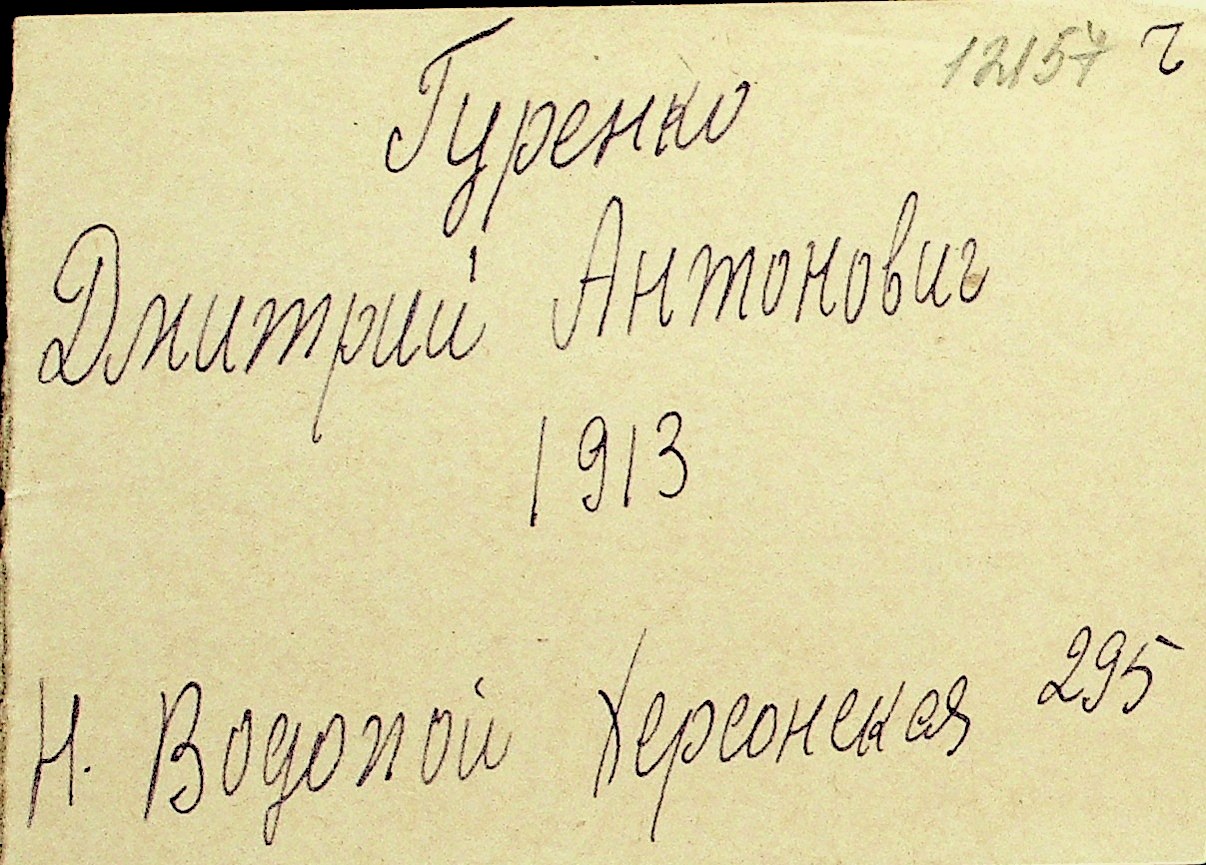 Гуренко
Дмитрий Антонович
1913
Н. Водопой Херсонская 295